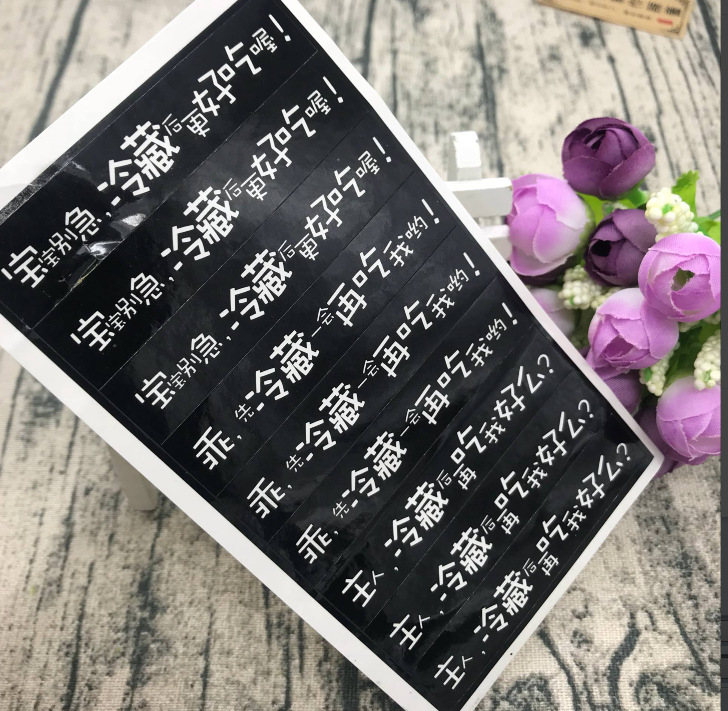 宝宝别急,冷藏后更好吃喔!
宝宝别急,冷藏后更好吃喔!
宝宝别急,冷藏后更好吃喔!
乖,先冷藏一会再吃我哟!
乖,先冷藏一会再吃我哟!
乖,先冷藏一会再吃我哟!
主人,冷藏后再吃我好么?
主人,冷藏后再吃我好么?
主人,冷藏后再吃我好么?